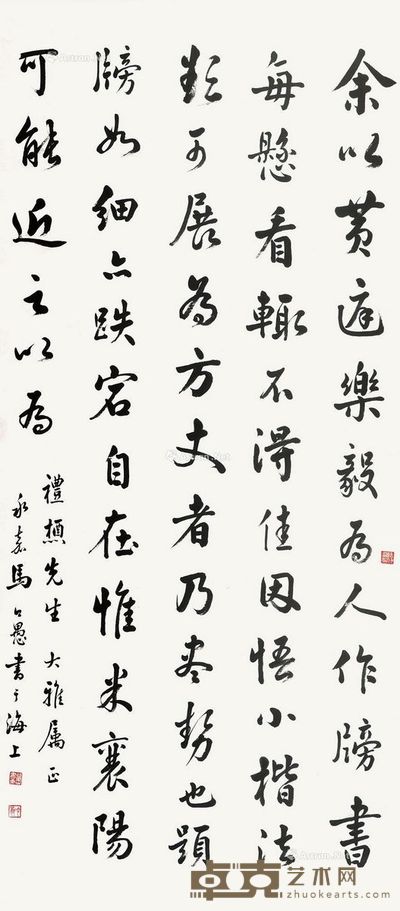 余以黃庭樂毅為人作牓書
每懸看輒不得佳因悟小楷法
欲可展為方丈者乃盡勢也題
牓如細亦跌宕自在惟米襄陽
可能近之以為
禮先生大雅屬正
永嘉馬公愚書于海上
卓克艺术网
www.zhuokearts.com